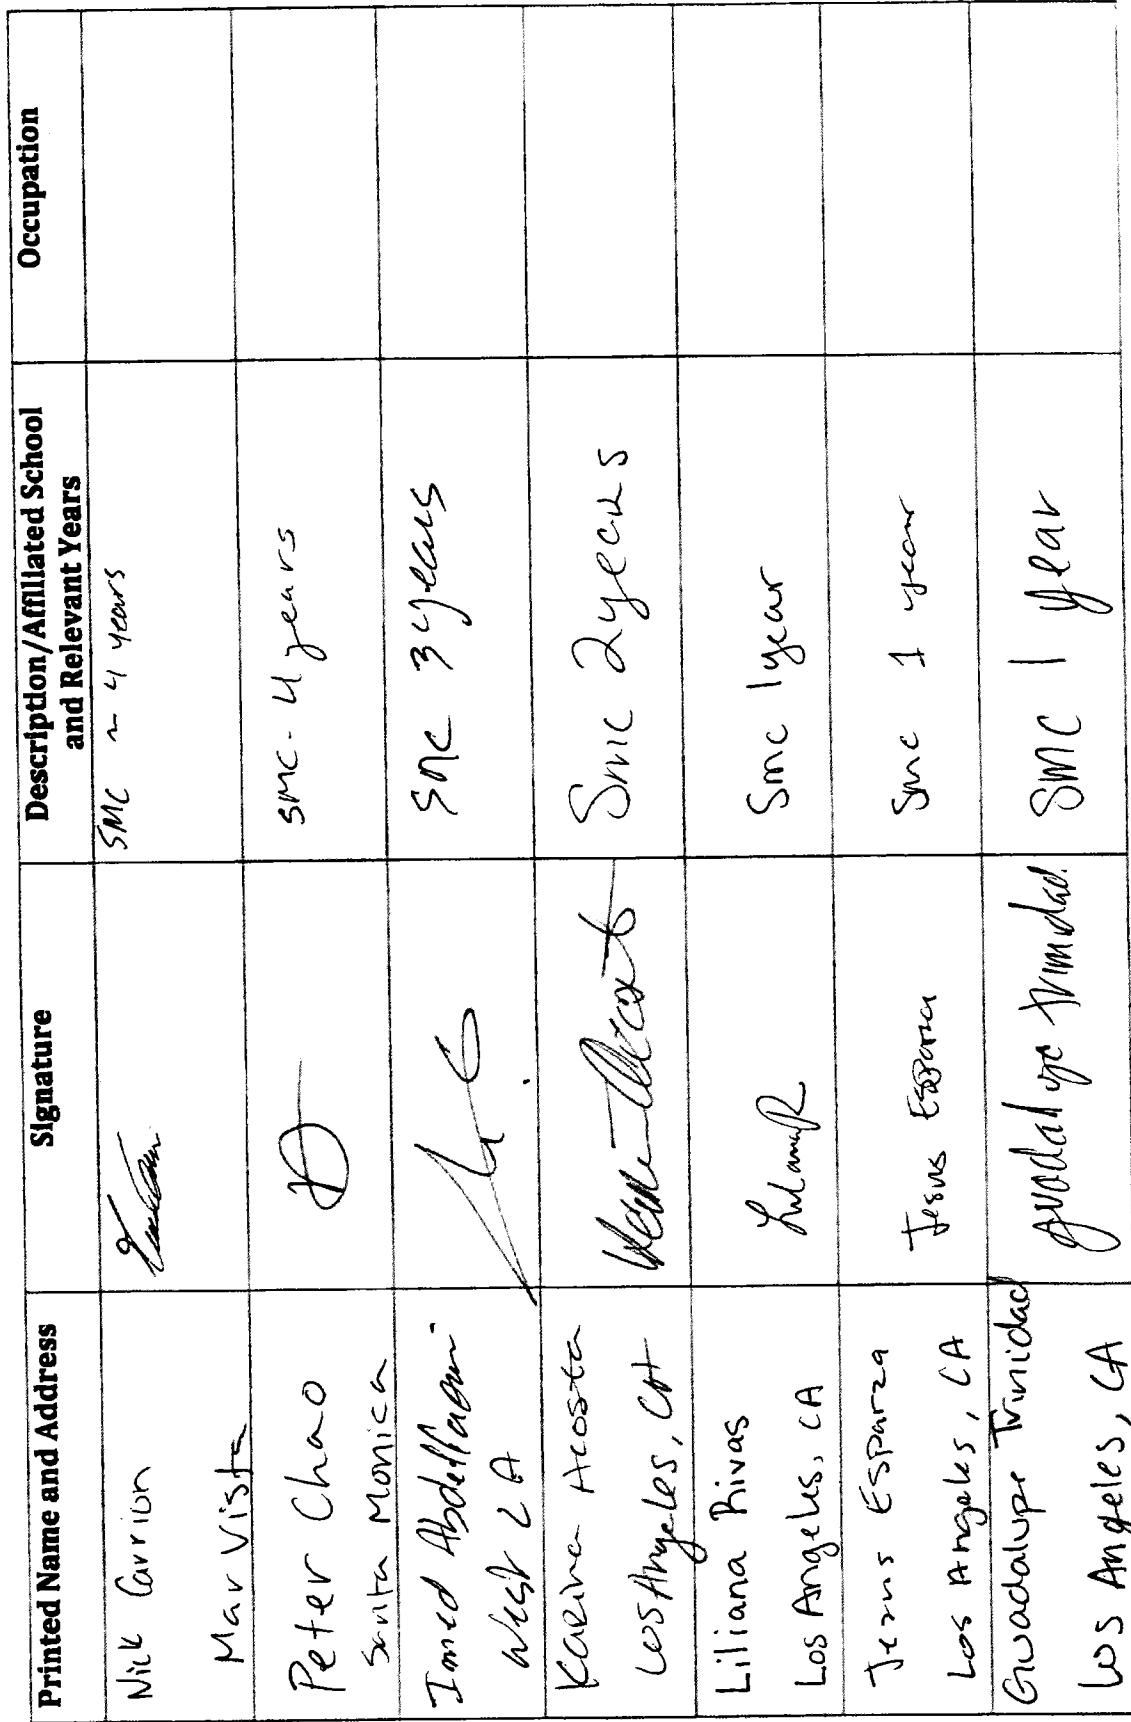 Printed Name and Address
Signature
Description/Affiliated School
and Relevant Years
Occupation
Nik Carrion
Mar Vista
SMC ~ 4 years
Peter Chao
Santa Monica
SMC - 4 years
Imed
West LA
SMC 3 years
Karina Acosta
Los Angeles, CA
Smc 2 years
Liliana Rivas
Los Angeles, CA
Smc 1 year
Jesus Esparza
Los Angeles, CA
Jesus Esparza
Smc 1 year
Guadalupe Trinidad
Los Angeles, CA
trinidad
SMC 1 year